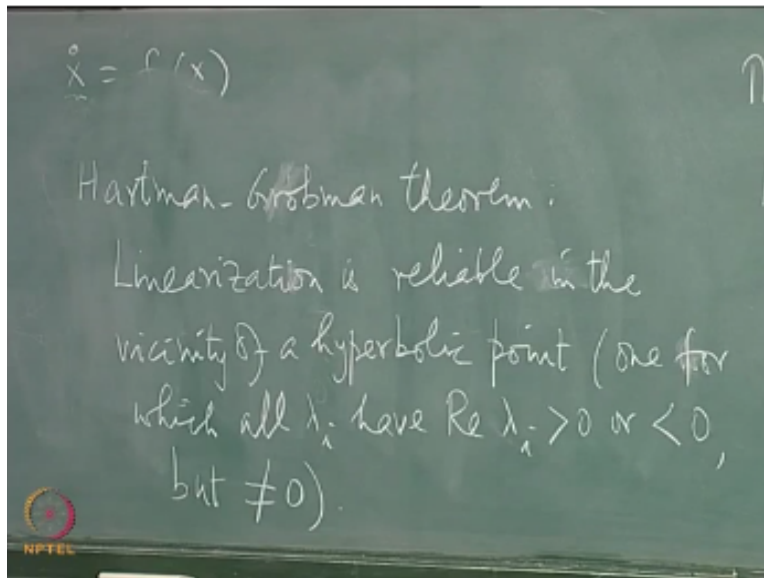 ẋ = f(x)
Hartman-Grobman theorem:
Linearization is reliable in the
vicinity of a hyperbolic point (one for
which all λᵢ have Re λᵢ >0 or <0,
but ≠0).
NPTEL